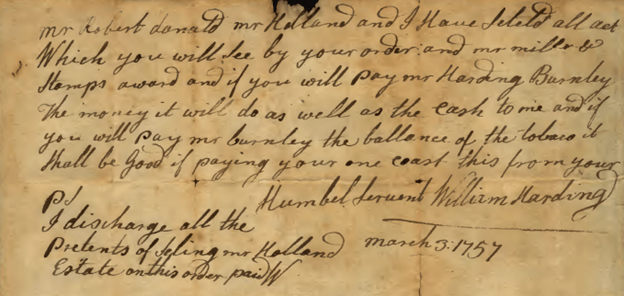 mr Robert donald mr Holland and I Have Seteld all act
Which you will See by your order and mr mills &
Stamps award and if you will pay mr Harding Burnley
The money it will do as well as the Cash to me and if
you will pay mr burnley the ballance of the tobaco it
Shall be Good if paying your one coast this from your
Humbel Servent William Harding
PS
I discharge all the
Pretents of Seling mr Holland
Estate on this order paid W
march 3: 1757